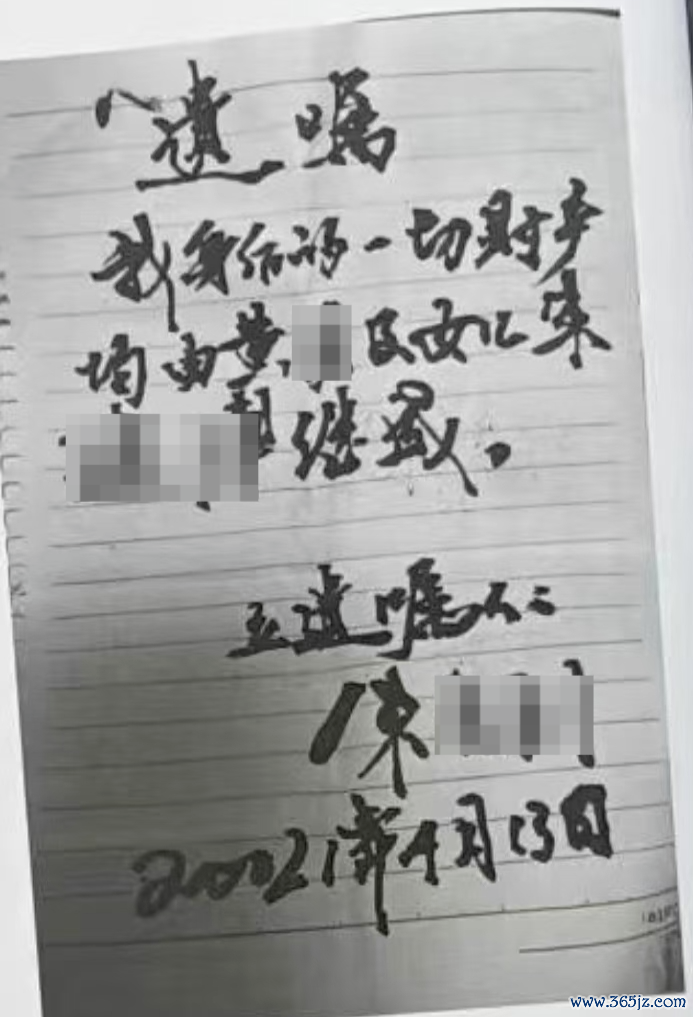 遗嘱
我身后的一切财产
均由黄 及女儿陈
继承。
立遗嘱人:
陈
20021年4月13日
www.365jz.com